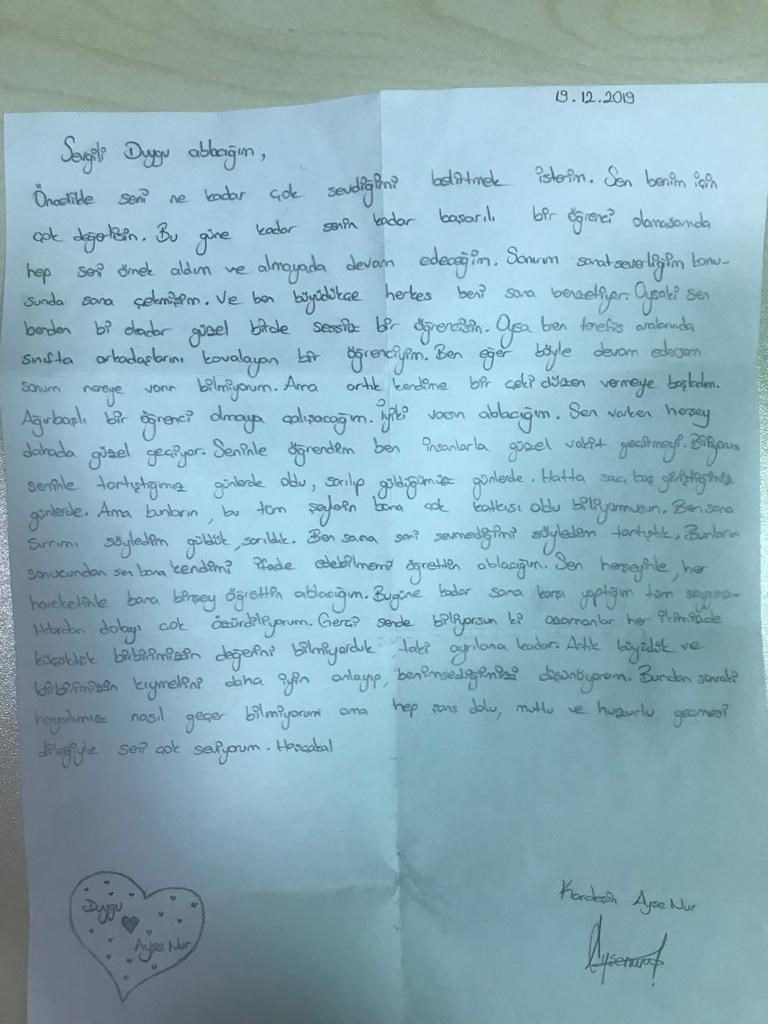 19.12.2019
Sevgili Duygu ablacığım,
Öncelikle seni ne kadar çok sevdiğimi belirtmek isterim. Sen benim için
çok değerlisin. Bu güne kadar senin kadar başarılı bir öğrenci olamasamda
hep seni örnek aldım ve almayada devam edeceğim. Sanırım sanatseverliğim konu-
sunda sana çekmişim. Ve ben büyüdükçe herkes beni sana benzetiyor. Oysaki sen
benden bi okadar güzel birde sessiz bir öğrencisin. Oysa ben tenefüs aralarında
sınıfta arkadaşlarını kovalayan bir öğrenciyim. Ben eğer böyle devam edersem
sonum nereye varır bilmiyorum. Ama artık kendime bir çeki düzen vermeye başladım.
Ağırbaşlı bir öğrenci olmaya çalışacağım. İyiki varsın ablacığım. Sen varken herşey
dahada güzel geçiyor. Seninle öğrendim ben insanlarla güzel vakit geçirmeyi. Biliyorum
seninle tartıştığımız günlerde oldu, sarılıp güldüğümüz günlerde. Hatta saç baş giriştiğimiz
günlerde. Ama bunların, bu tüm şeylerin bana çok katkısı oldu biliyormusun. Ben sana
sırrımı söyledim güldük, sarıldık. Ben sana seni sevmediğimi söyledim tartıştık, Bunların
sonucundan sen bana kendimi ifade edebilmemi öğrettin ablacığım. Sen herşeyinle, her
hareketinle bana birşey öğrettin ablacığım. Bugüne kadar sana karşı yaptığım tüm saygısız-
lıklardan dolayı çok özürdiliyorum. Gerçi sende biliyorsun ki ozamanlar her ikimizde
küçüktük birbirimizin değerini bilmiyorduk taki ayrılana kadar. Artık büyüdük ve
birbirimizin kıymetini daha iyin anlayıp, benimsediğimizi düşünüyorum. Bundan sonraki
hayatımız nasıl geçer bilmiyorum ama hep şans dolu, mutlu ve huzurlu geçmesi
dileğiyle seni çok seviyorum. Hoşcakal
Kardeşin Ayse Nur
Duygu
Ayse Nur
Aysenur